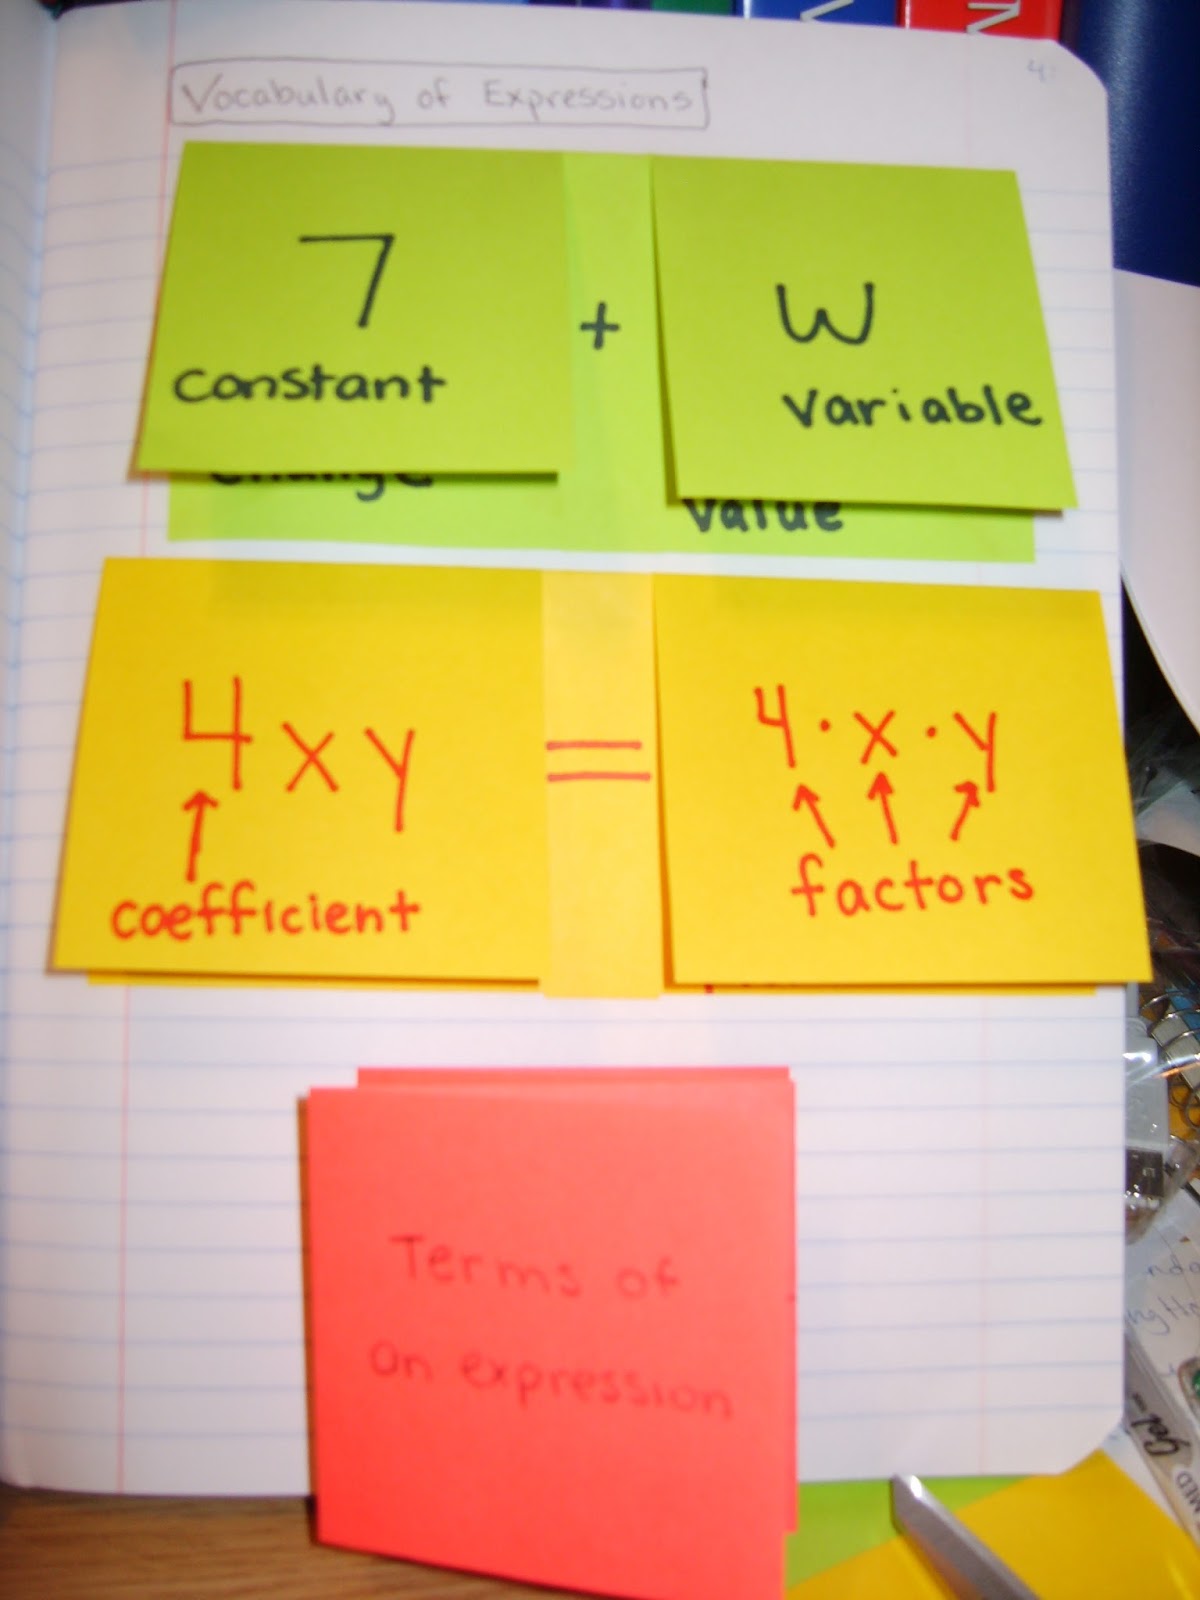 Vocabulary of Expressions
7
+
w
constant
variable
change
value
4xy
=
4·x·y
coefficient
factors
Terms of
an expression
Gel